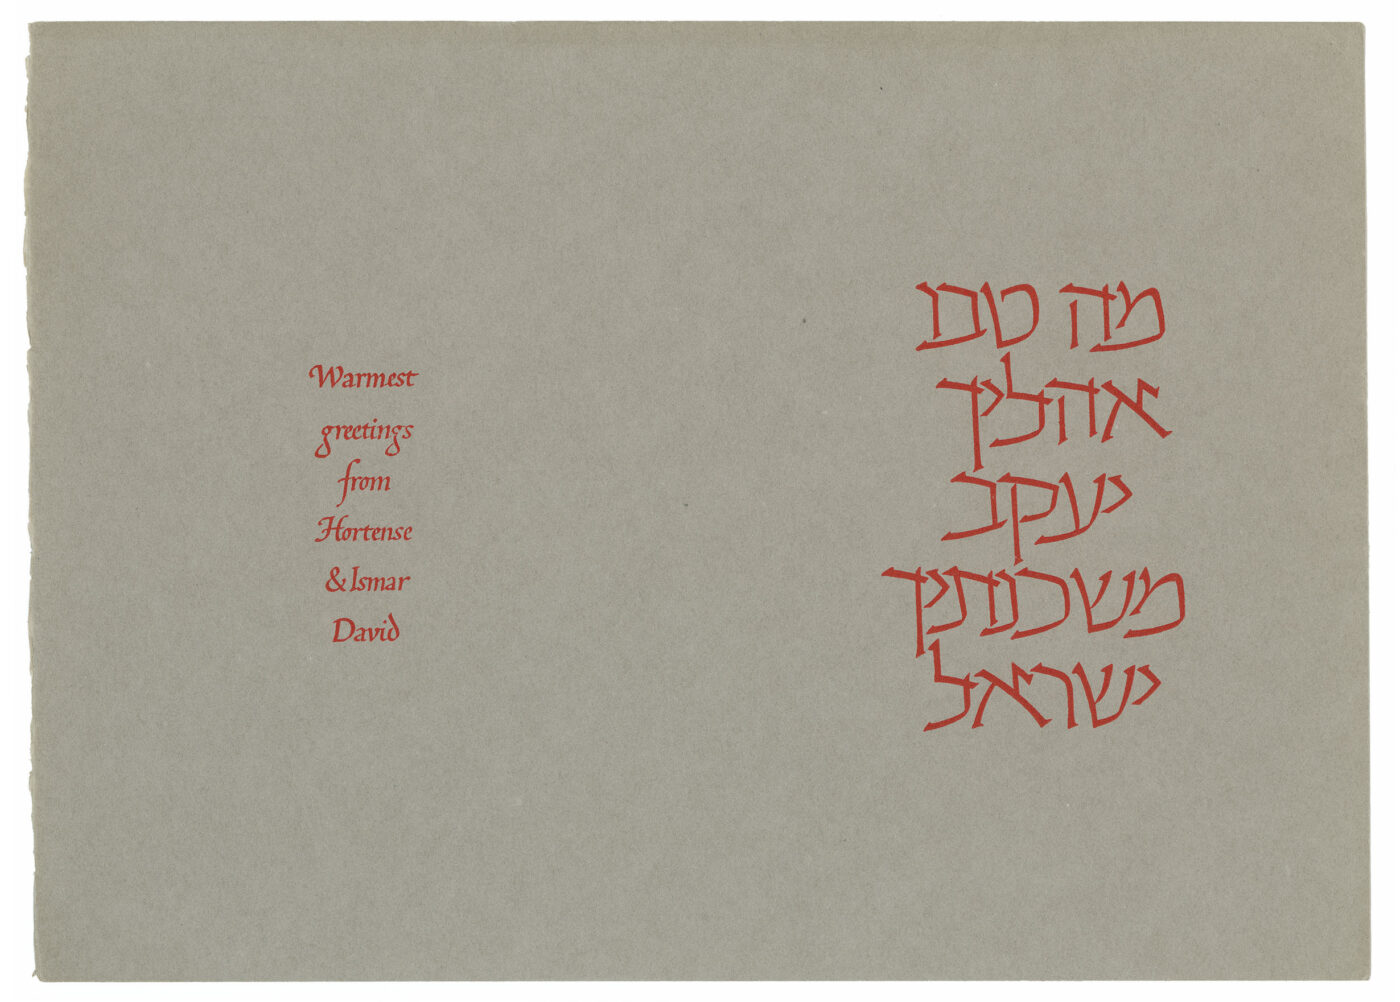 Warmest
greetings
from
Hortense
& Ismar
David
מה טבו
אהליך
יעקב
משכנתיך
ישראל